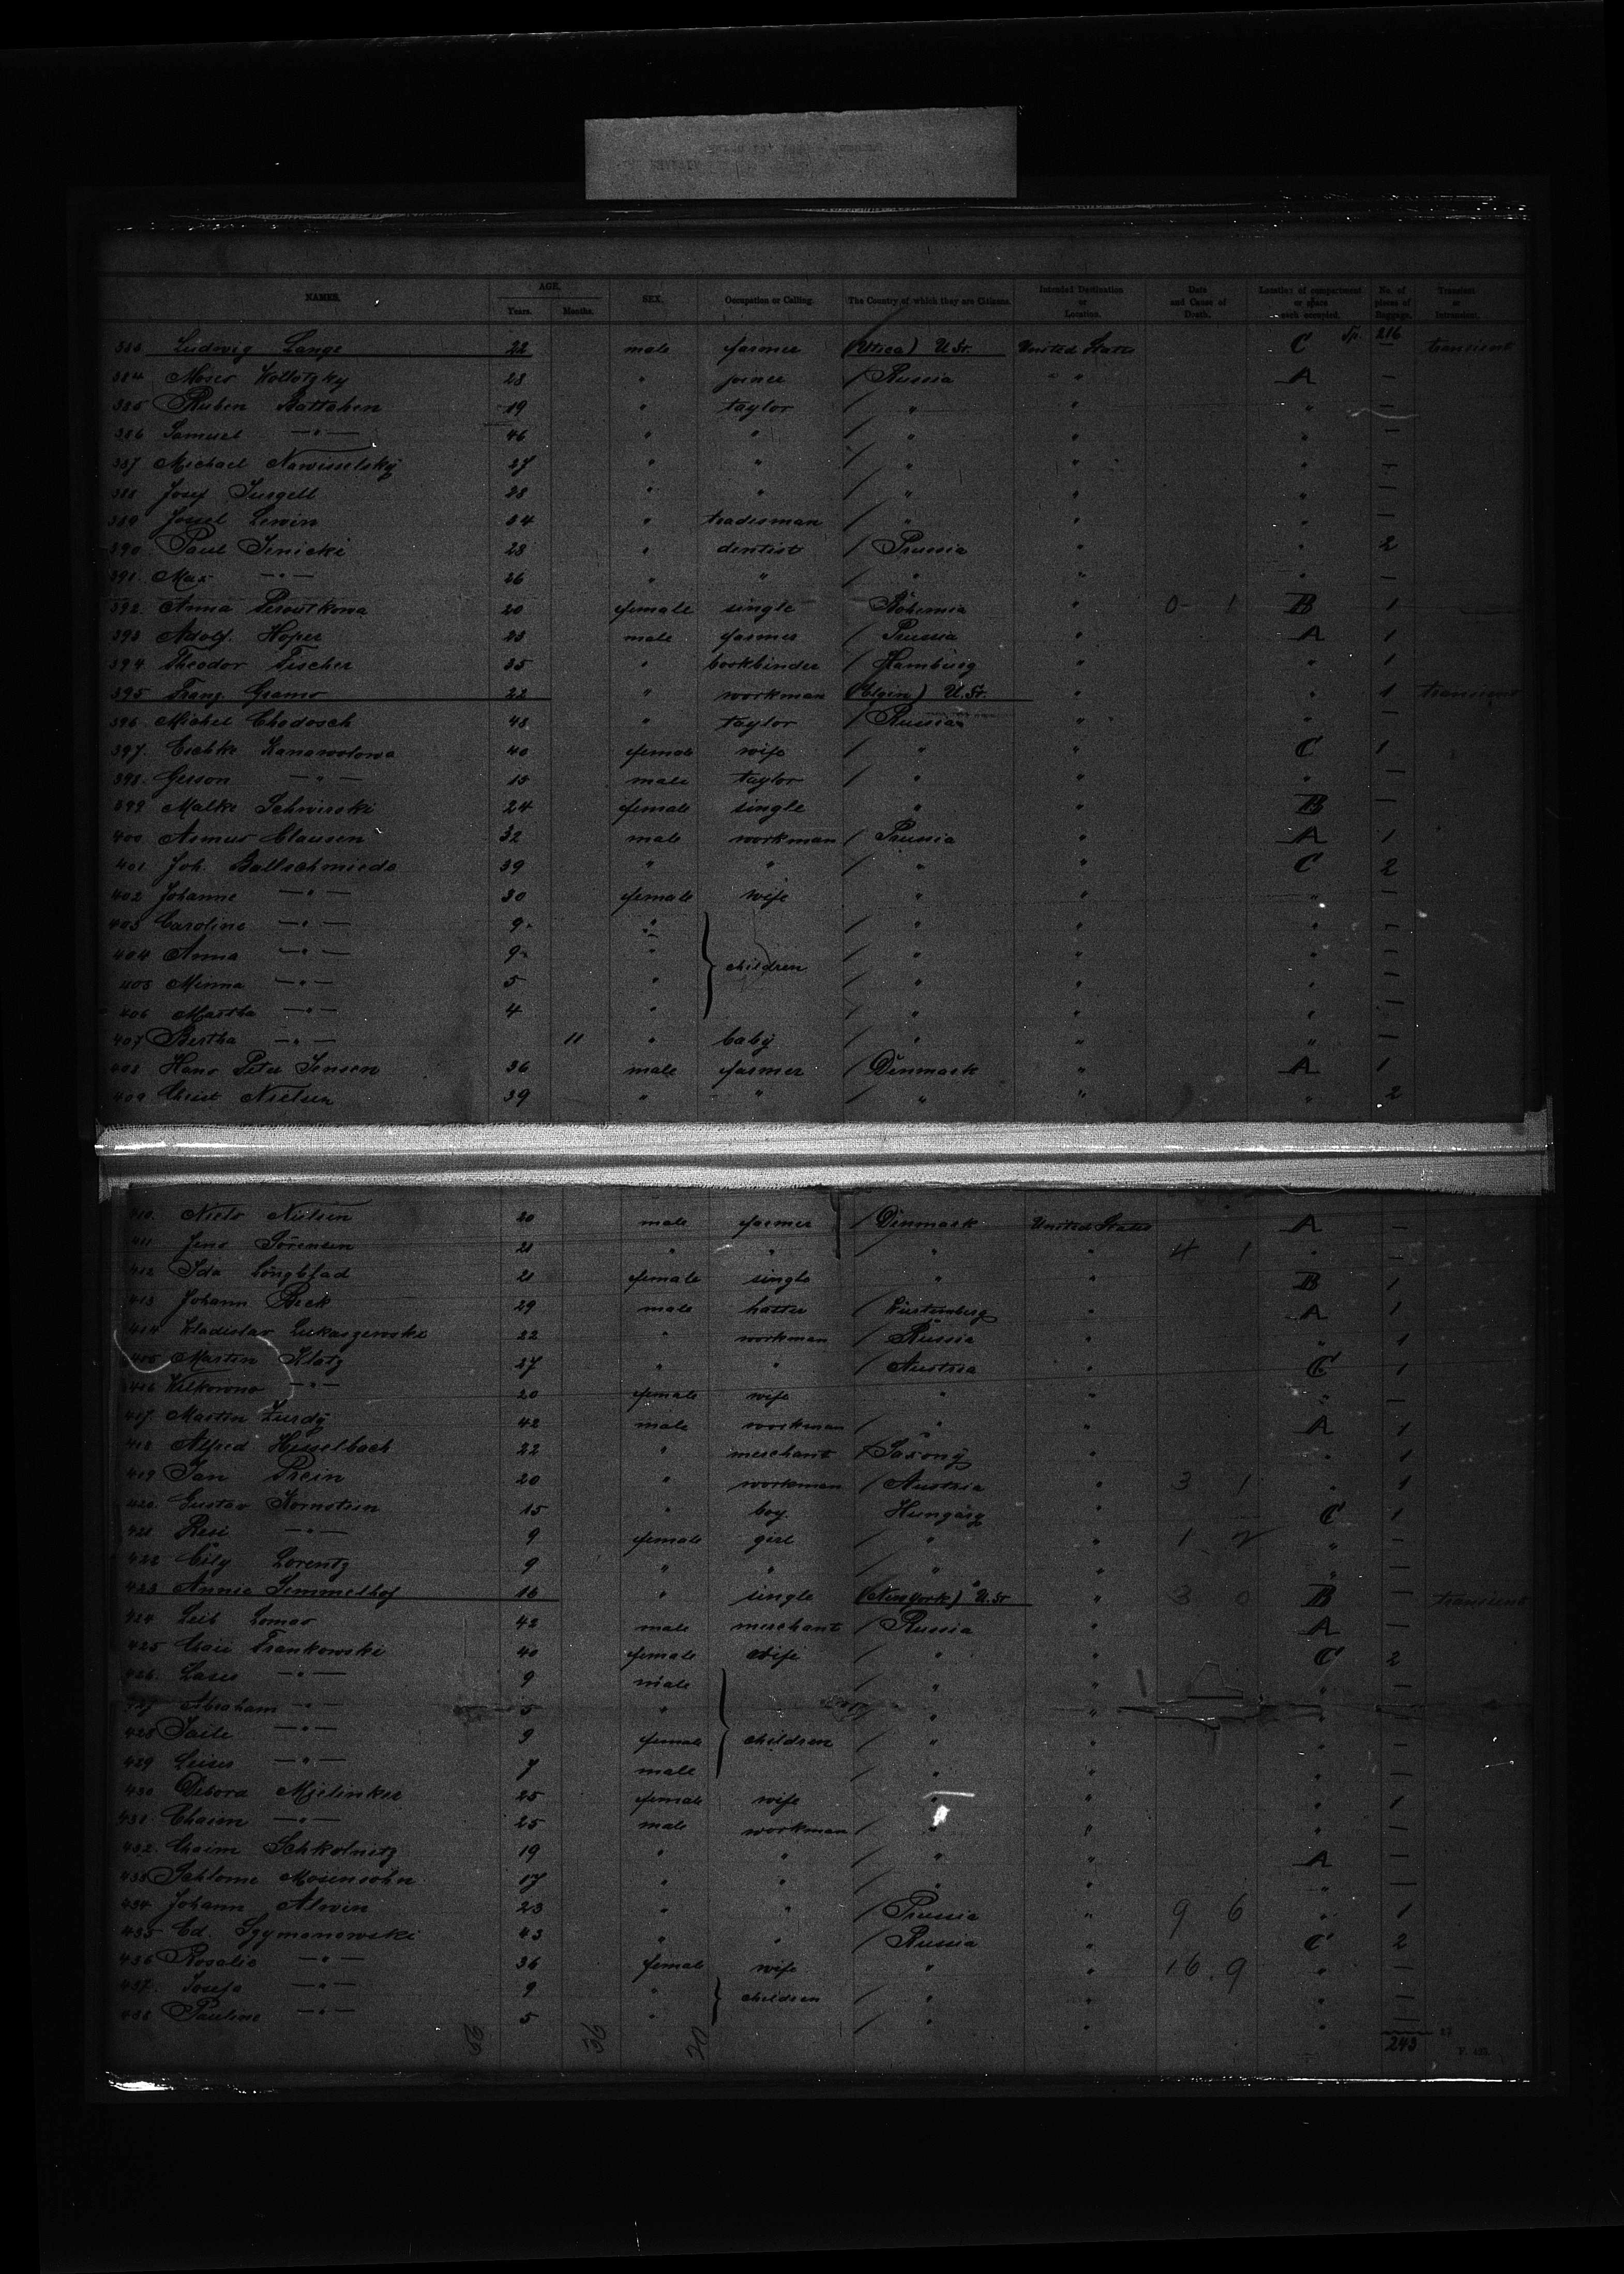 NAMES. AGE. Years. Months. SEX. Occupation or Calling. The Country of which they are Citizens. Intended Destination or Location. Date and Cause of Death. Location of compartment or space each occupied. No. of pieces of Baggage. Transient or Intransient.
383 Ludovig Lange 22 male farmer (Utica) U.St. United States C Tp. 216 — transient
384 Moses Kollotzky 28 " joiner / Russia " " A —
385 Ruben Battahen 19 " taylor / " " " —
386 Samuel —"— 46 " " / " " " —
387 Michael Nawisselsky 27 " " / " " " —
388 Josef Surgell 28 " " / " " " —
389 Jossel Lewin 34 " tradesman / " " " —
390. Paul Jenicke 28 " dentist / Prussia " " 2
391. Max —"— 26 " " / " " " —
392. Anna 20 female single Bohemia " 0 — 1 B 1
393 Adolf Hoper 23 male farmer / Prussia " A 1
394. Theodor Fischer 35 " bookbinder / Hamburg " " 1
395 Franz Grams 22 " workman (Elgin) U.St. " " 1 transient
396. Michel Chodosch 48 " taylor / Russia " " —
397. Eischke Kanawolowa 40 female wife / " " C 1
398. Gesson —"— 15 male taylor / " " " —
399 Malke Schwirski 24 female single " " B —
400 Asmus Clausen 32 male workman / Prussia " A 1
401 Joh. Ballschmiede 39 " " / " " C 2
402 Johanne —"— 30 female wife " " " —
403 Caroline —"— 9. " / " " " —
404 Anna —"— 9 " children / " " " —
405 Minna —"— 5 " / " " " —
406 Martha —"— 4 " / " " " —
407 Bertha —"— 11 " baby / " " " —
408 Hans Peter Jensen 36 male farmer / Denmark " A 1
409 Christ Nielsen 39 " " / " " " 2
410. Niels Nielsen 20 male farmer / Denmark United States A —
411 Jens Sörensen 21 " " / " " 4 1 " —
412 Ida Löngblad 21 female single " " B 1
413 Johann Beck 29 male hatter / Würtemberg " A 1
414 Wladislav Lukaszewski 22 " workman / Russia " " 1
415 Martin Klatz 27 " " / Austria " C 1
416 —"— 20 female wife " " " —
417. Martin Zurdy 42 male workman / " " A 1
418 Alfred Hesselbach 22 " merchant / Saxony " " 1
419 Jan Prein 20 " workman / Austria " 3 1 " 1
420. Gustav Kornstein 15 " boy Hungary " C 1
421 Resi —"— 9 female girl / " " 1 2 " —
422 Cily Lorentz 9 " " / " " " —
423 Annie Semmelhof 16 " single (New York) U.St " 3 0 B — transient
424 Leib Lomas 42 male merchant / Russia " A —
425 Chaie Frankowski 40 female wife / " " C 2
426. Laser —"— 9 male / " " " —
427 Abraham —"— 5 " " " " —
428 Saile —"— 9 female children / " " " —
429 Leiser —"— 7 male / " " " —
430 Debora Mielinker 25 female wife " " " 1
431. Chaim —"— 25 male workman / " " " —
432. Chaim Schkolnitz 19 " " / " " A —
433 Schlome Mosensohn 17 " " / " " " —
434 Johann Alwin 23 " " / Prussia " 9 6 " 1
435 Ed. Szymanowski 43 " " / Russia " C 2
436 Rosalie —"— 36 female wife " " 16.9 " —
437. Josefa —"— 9 " children / " " " —
438 Pauline —"— 5 " / " " " —
243